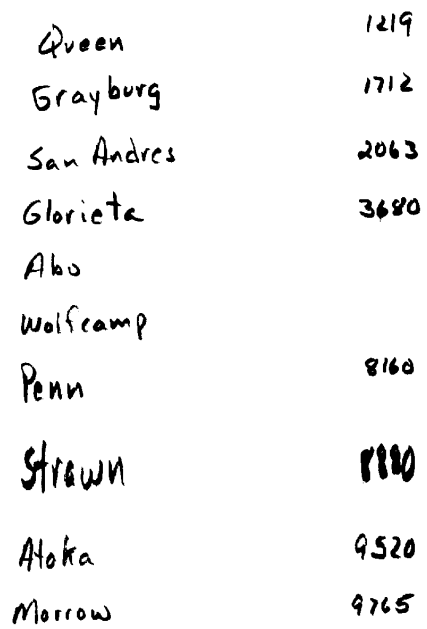 Queen 1219
Grayburg 1712
San Andres 2063
Glorieta 3680
Abo
Wolfcamp
Penn 8160
Strawn
Atoka 9520
Morrow 9765